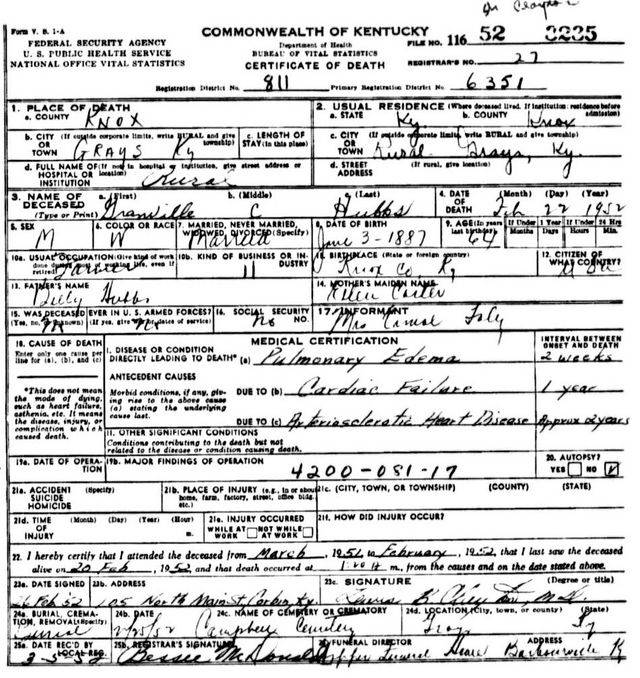 Dr Clayton
Form V. S. 1-A
COMMONWEALTH OF KENTUCKY
FEDERAL SECURITY AGENCY
U. S. PUBLIC HEALTH SERVICE
NATIONAL OFFICE VITAL STATISTICS
Department of Health
BUREAU OF VITAL STATISTICS
CERTIFICATE OF DEATH
FILE NO. 116 52 3235
REGISTRAR'S NO. 27
Registration District No. 811 Primary Registration District No. 6351
1. PLACE OF DEATH
a. COUNTY KNOX
2. USUAL RESIDENCE (Where deceased lived. If institution: residence before admission)
a. STATE Ky. b. COUNTY Knox
b. CITY (If outside corporate limits, write RURAL and give township)
OR TOWN GRAYS Ky
c. LENGTH OF STAY (in this place)
c. CITY (If outside corporate limits, write RURAL and give township)
OR TOWN Rural Grays, Ky.
d. FULL NAME OF (If not in hospital or institution, give street address or location)
HOSPITAL OR INSTITUTION Rural
d. STREET ADDRESS (If rural, give location)
3. NAME OF DECEASED (Type or Print)
a. (First) Granville b. (Middle) C c. (Last) Hubbs
4. DATE OF DEATH (Month) (Day) (Year) Feb 22 1952
5. SEX M
6. COLOR OR RACE W
7. MARRIED, NEVER MARRIED, WIDOWED, DIVORCED (Specify) Married
8. DATE OF BIRTH June 3-1887
9. AGE (In years last birthday) 64 If Under 1 Year Months Days If Under 24 Hrs Hours Min.
10a. USUAL OCCUPATION (Give kind of work done during most of working life, even if retired)
10b. KIND OF BUSINESS OR INDUSTRY 11
11. BIRTHPLACE (State or foreign country) Knox Co, Ky
12. CITIZEN OF WHAT COUNTRY?
13. FATHER'S NAME Billy Hubbs
14. MOTHER'S MAIDEN NAME
15. WAS DECEASED EVER IN U. S. ARMED FORCES? (Yes, no, or unknown) (If yes, give war or dates of service)
16. SOCIAL SECURITY NO. no
17. INFORMANT Mrs
18. CAUSE OF DEATH
Enter only one cause per line for (a), (b), and (c)
MEDICAL CERTIFICATION
INTERVAL BETWEEN ONSET AND DEATH
I. DISEASE OR CONDITION DIRECTLY LEADING TO DEATH* (a) Pulmonary Edema 2 weeks
*This does not mean the mode of dying, such as heart failure, asthenia, etc. It means the disease, injury, or complication which caused death.
ANTECEDENT CAUSES
Morbid conditions, if any, giving rise to the above cause (a) stating the underlying cause last.
DUE TO (b) Cardiac Failure 1 year
DUE TO (c) Arteriosclerotic Heart Disease Approx 2 years
II. OTHER SIGNIFICANT CONDITIONS
Conditions contributing to the death but not related to the disease or condition causing death.
19a. DATE OF OPERATION
19b. MAJOR FINDINGS OF OPERATION
4200-081-17
20. AUTOPSY? YES NO ✓
21a. ACCIDENT SUICIDE HOMICIDE (Specify)
21b. PLACE OF INJURY (e.g., in or about home, farm, factory, street, office bldg. etc.)
21c. (CITY, TOWN, OR TOWNSHIP) (COUNTY) (STATE)
21d. TIME OF INJURY (Month) (Day) (Year) (Hour) m.
21e. INJURY OCCURRED WHILE AT WORK NOT WHILE AT WORK
21f. HOW DID INJURY OCCUR?
22. I hereby certify that I attended the deceased from March, 1951, to February, 1952, that I last saw the deceased
alive on 20 Feb, 1952, and that death occurred at m., from the causes and on the date stated above.
23a. DATE SIGNED 26 Feb 52
23b. ADDRESS 105 North Main St Corbin, Ky.
23c. SIGNATURE (Degree or title) M.D.
24a. BURIAL, CREMATION, REMOVAL (Specify) Burial
24b. DATE 2/25/52
24c. NAME OF CEMETERY OR CREMATORY Campbell Cemetery
24d. LOCATION (City, town, or county) (State) Grays Ky
25a. DATE REC'D BY LOCAL REG. 3-5-52
25b. REGISTRAR'S SIGNATURE Bessie McDonald
FUNERAL DIRECTOR Funeral Home
ADDRESS Barbourville Ky